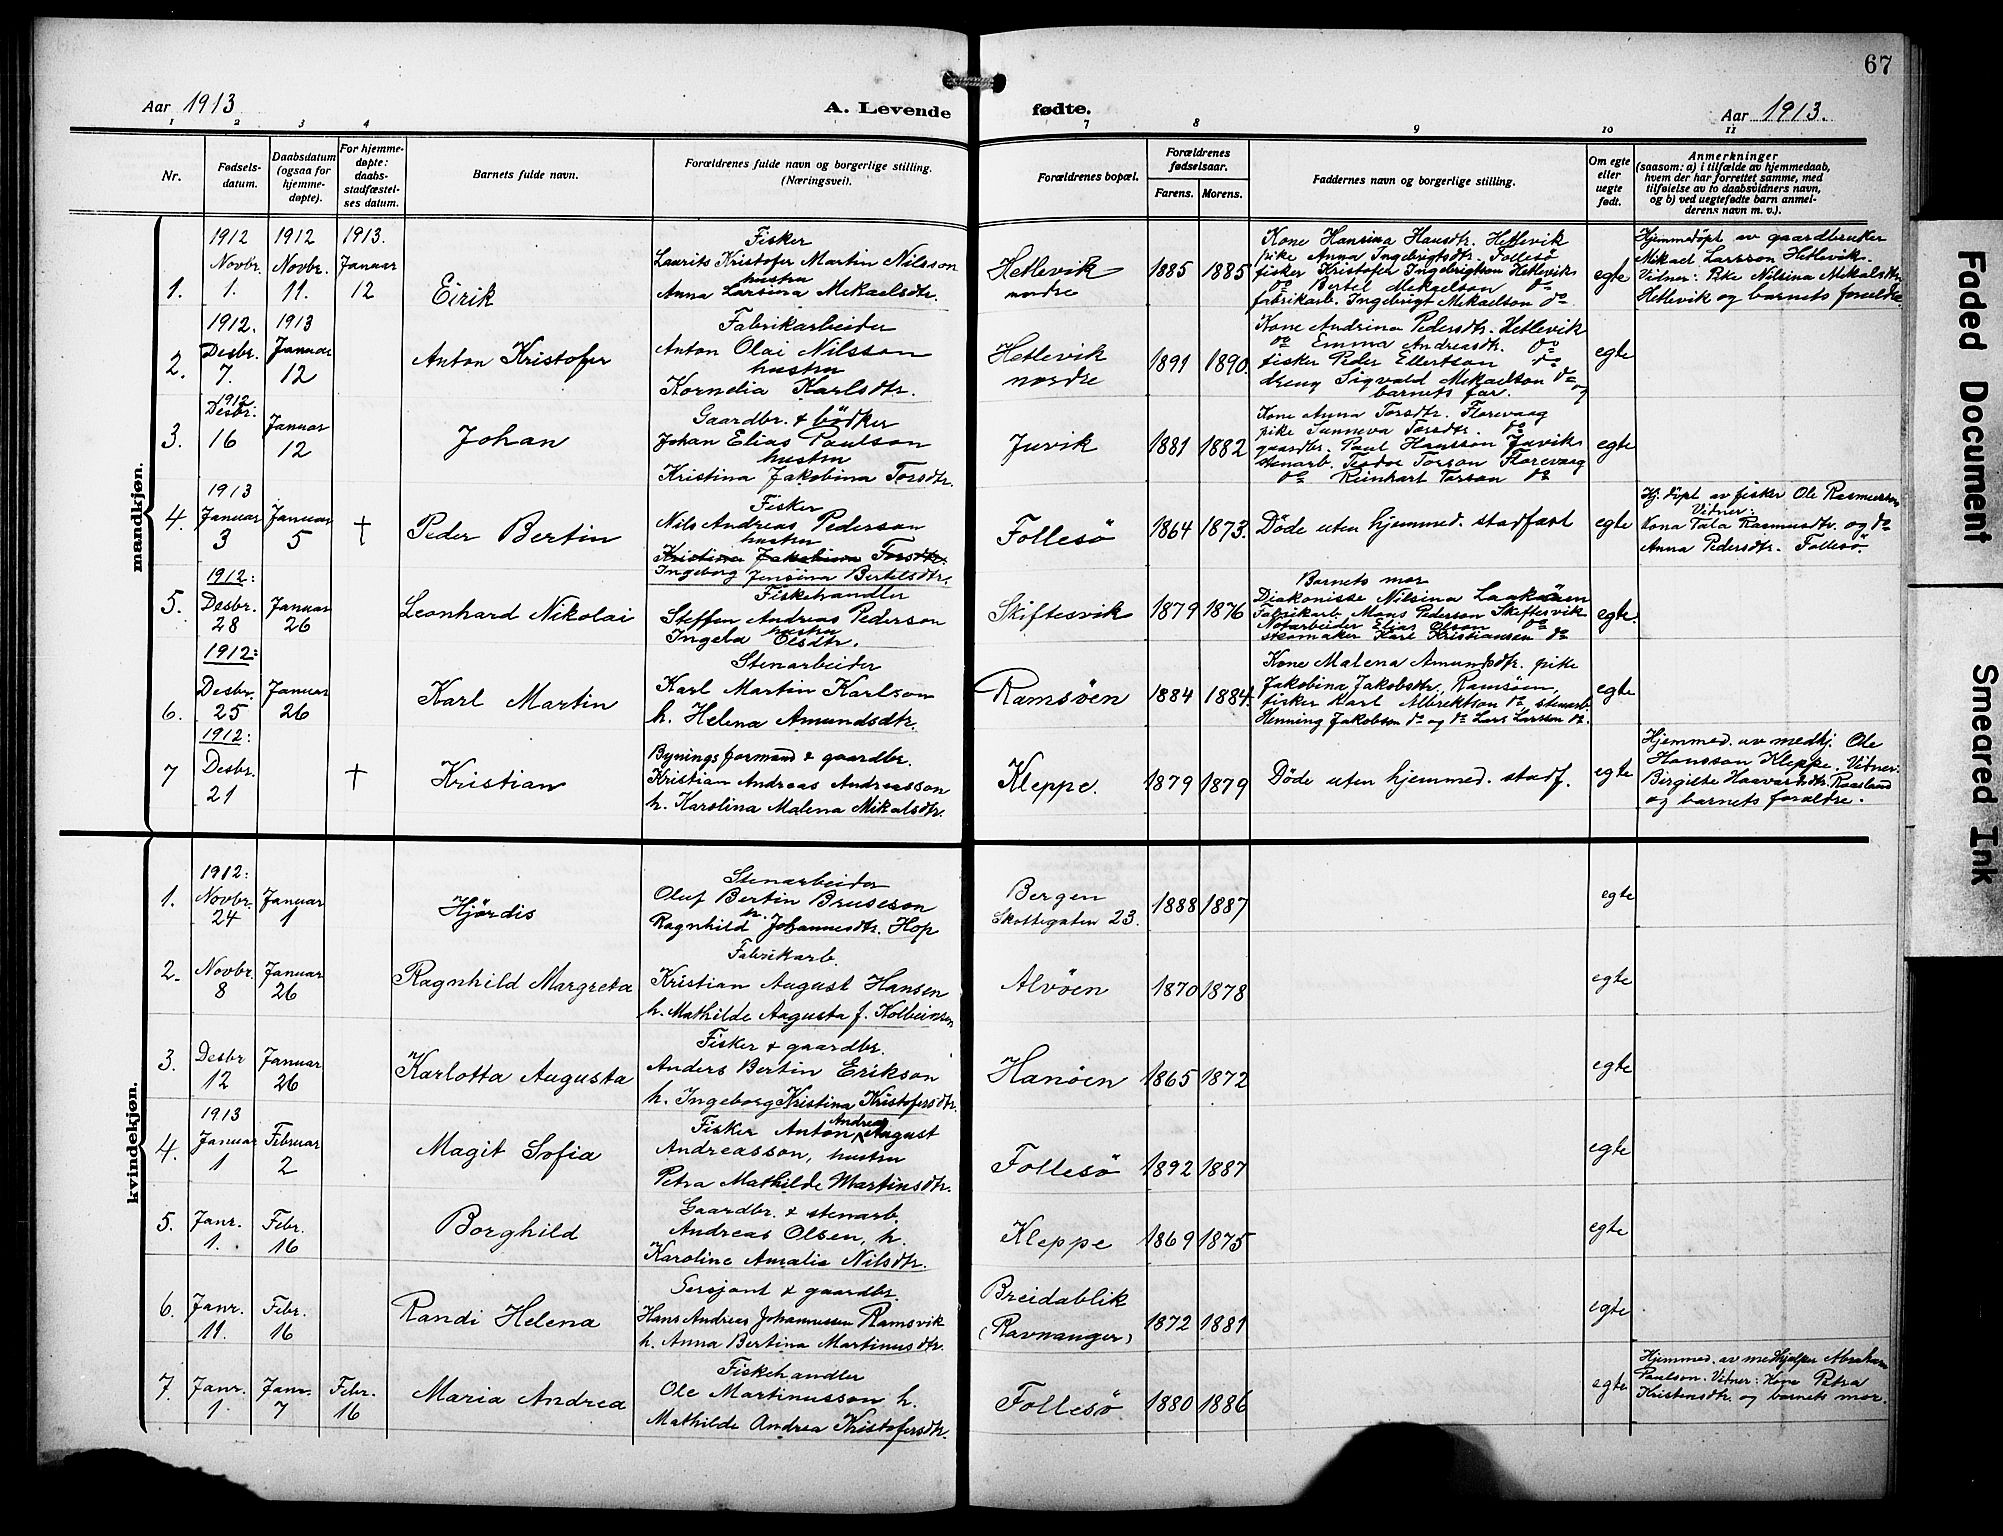 67
Aar 1913
A. Levende
fødte.
Aar 1913.
1 2 3 4 7 8 9 10 11
Nr.
Fødsels-
datum.
Daabsdatum
(ogsaa for
hjemme-
døpte).
For hjemme-
døpte:
daabs-
stadfæstel-
ses datum.
Barnets fulde navn.
Forældrenes fulde navn og borgerlige stilling.
(Næringsvei).
Forældrenes bopæl.
Forældrenes
fødselsaar.
Farens. Morens.
Faddernes navn og borgerlige stilling.
Om egte
eller
uegte
født.
Anmerkninger
(saasom: a) i tilfælde av hjemmedaab,
hvem der har forrettet samme, med
tilføielse av to daabsvidners navn,
og b) ved uegtefødte barn anmel-
derens navn m. v.).
mandkjøn.
1.
1912
Novbr.
1.
1912
Novbr.
11.
1913.
Januar
12
Eirik
Fisker
Laurits Kristofer Martin Nilsson
hustru
Anna Larsina Mekaelsdtr.
Hetlevik
nordre
1885 1885
Kone Hansina Hansdtr. Hetlevik
pike Anna Ingebrigtsdtr. Follesö
fisker Kristofer Ingebrigtson Hetlevik
do Bertel Mekaelson do
fabrikarb. Ingebrigt Mekaelson do
egte
Hjemmedöpt av gaardbruker
Mikael Larsson Hetlevik.
Vidner: Pike Nilsina Mikalsdtr.
Hetlevik og barnets forældre
2.
1912.
Desbr.
7.
1913
Januar
12
Anton Kristofer
Fabrikarbeider
Anton Olai Nilsson
hustru
Kornelia Karlsdtr.
Hetlevik
nordre
1891 1890.
Kone Andrina Pedersdtr. Hetlevik
do Emma Andreasdtr. do
fisker Peder Ellertson do
dreng Sigvald Mekaelson do og
barnets far.
egte
3.
1912
Desbr:
16
Januar
12
Johan
Gaardbr. & bödker
Johan Elias Paulson
hustru
Kristina Jakobina Torsdtr.
Juvik
1881 1882
Kone Anna Torsdtr. Florevaag
pike Sunneva Torsdtr. do
gaardbr. Paul Hansson Juvik
stenarb. Teodor Torson Florevaag
do Reinhart Torson do
egte
4.
1913
Januar
3
Januar
5
†
Peder Bertin
Fisker
Nils Andreas Pederson
hustru
Kristina Jakobina Torsdtr.
Ingeborg Jensina Bertelsdtr.
Follesö
1864 1873.
Döde uten hjemmed. stadfæst
egte
Hj. döpt av fisker Ole Rasmusson
Vidner:
Kona Tala Rasmusdtr. og do
Anna Pedersdtr. Follesö
5.
1912:
Desbr.
28
Januar
26
Leonhard Nikolai
Fiskehandler
Steffen Andreas Pederson
hustru
Ingela Olsdtr.
Skiftesvik
1879 1876
Barnets mor
Diakonisse Nilsina
Fabrikarb. Mons Pederson Skiftesvik
Notarbeider Elias Olson do
skomaker Karl Kristiansen do
egte.
6.
1912:
Desbr.
25
Januar
26
Karl Martin
Stenarbeider
Karl Martin Karlson
h. Helena Amundsdtr.
Ramsöen
1884 1884.
Kone Malena Amundsdtr. pike
Jakobina Jakobsdtr., Ramsöen,
fisker Karl Albrektson do, stenarb.
Henning Jakobson do og do Lars Larsson do.
egte
7
1912:
Desbr.
21
†
Kristian
Bynings formand & gaardbr.
Kristian Andreas Andreasson
h. Karolina Malena Mikalsdtr.
Kleppe.
1879 1879
Döde uten hjemmed. stadf.
egte
Hjemmed. av medhj. Ole
Hansson Kleppe. Vidner:
Birgitte Haavarsdtr.
og barnets forældre.
kvindekjøn.
1.
1912:
Novbr.
24
Januar
1
Hjördis
Stenarbeider
Oluf Bertin Bruseson
h.
Ragnhild Johannesdtr. Hop
Bergen
Skottegaten 23.
1888 1887
egte
2.
Novbr.
8
Januar
26
Ragnhild Margreta
Fabrikarb.
Kristian August Hansen
h. Mathilde Augusta f. Kolbeinsen
Alvöen
1870 1878
egte
3.
Desbr
12
Januar
26
Karlotta Augusta
Fisker & gaardbr.
Anders Bertin Erikson
h. Ingeborg Kristina Kristofersdtr.
Hanöen
1865 1872
egte
4.
1913
Januar
1
Februar
2
Magit Sofia
Andreas
Fisker Anton August
Andreasson, hustru
Petra Mathilde Martinsdtr.
Follesö
1892 1887
egte
5.
Janr.
1.
Febr.
16
Borghild
Gaardbr. & stenarb.
Andreas Olsen, h.
Karoline Amalia Nilsdtr.
Kleppe
1869 1875
egte
6.
Janr.
11.
Febr.
16
Randi Helena
Sersjant & gaardbr.
Hans Andreas Johannessen Ramsvik
h. Anna Bertina Martinusdtr.
Breidablik
(Ravnanger)
1872 1881
egte
7.
Janr.
1.
Janr.
7
Febr.
16
Maria Andrea
Fiskehandler
Ole Martinusson h.
Mathilde Andrea Kristofersdtr.
Follesö
1880 1886
egte
Hjemmed. av medhjelper Abraham
Paulson. Vidner: Kone Petra
Kristensdtr. og barnets mor.
Faded Document
Smeared Ink